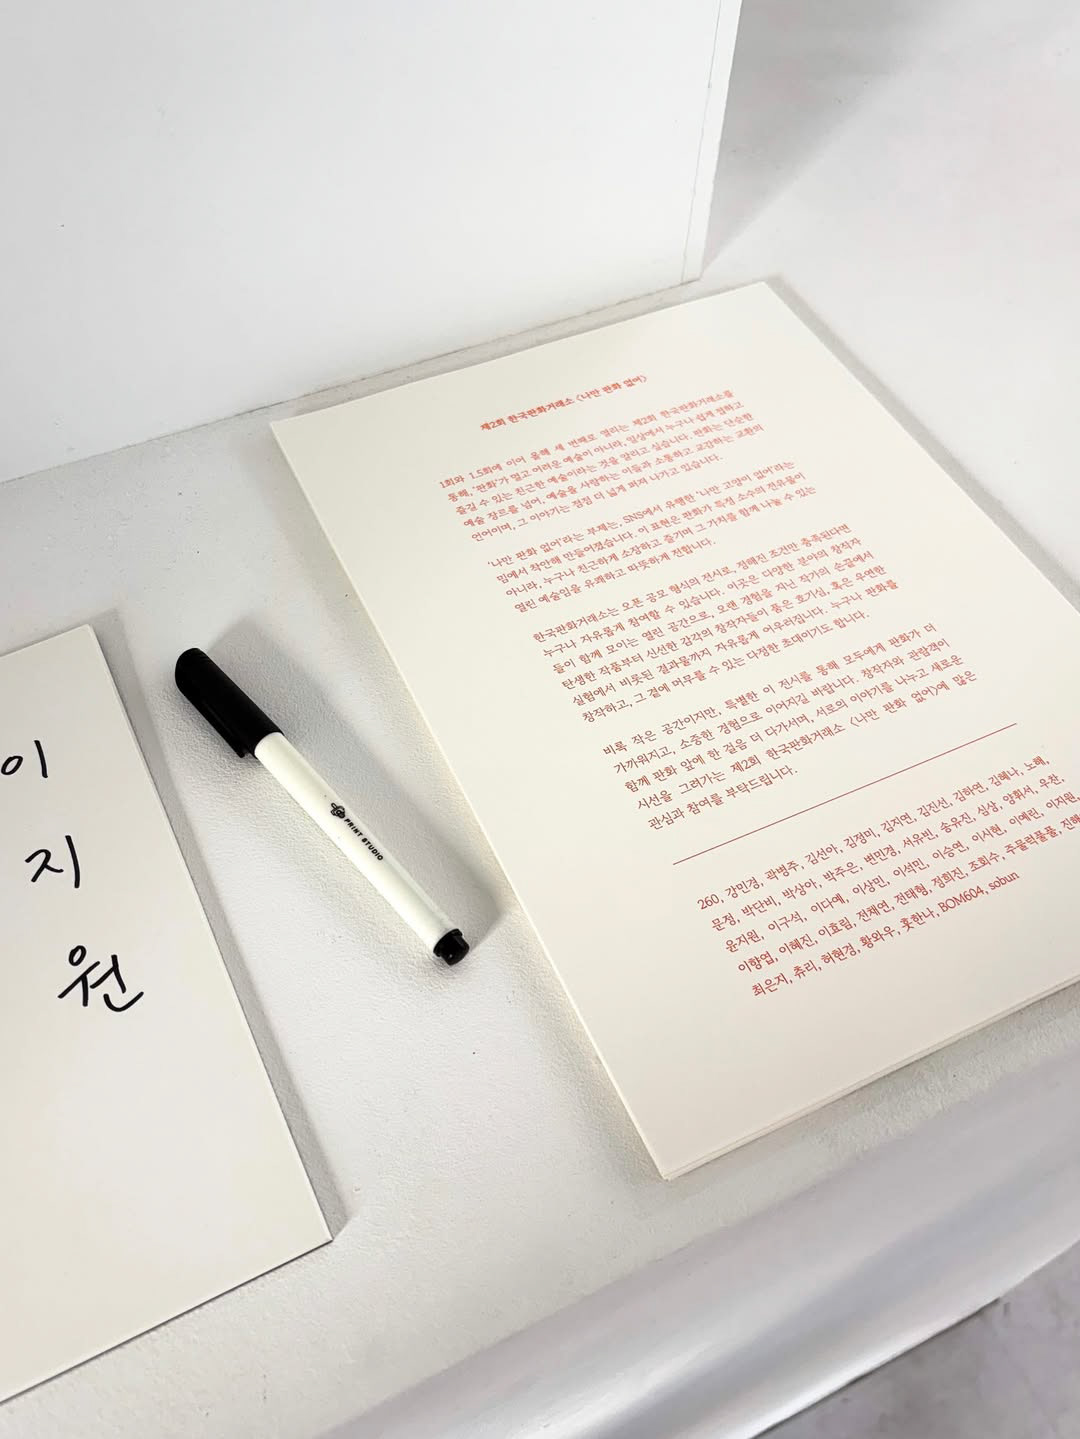 이
지
원
PRINT STUDIO
제2회 한국판화거래소 <나만 판화 없어>
1회와 1.5회에 이어 올해 세 번째로 열리는 제2회 한국판화거래소를
통해, '판화'가 멀고 어려운 예술이 아니라, 일상에서 누구나 쉽게 접하고
즐길 수 있는 친근한 예술이라는 것을 알리고 싶습니다. 판화는 단순한
예술 장르를 넘어, 예술을 사랑하는 이들과 소통하고 교감하는 교환의
언어이며, 그 이야기는 점점 더 넓게 퍼져 나가고 있습니다.
'나만 판화 없어'라는 부제는, SNS에서 유행한 '나만 고양이 없어'라는
밈에서 착안해 만들어졌습니다. 이 표현은 판화가 특정 소수의 전유물이
아니라, 누구나 친근하게 소장하고 즐기며 그 가치를 함께 나눌 수 있는
열린 예술임을 유쾌하고 따뜻하게 전합니다.
한국판화거래소는 오픈 공모 형식의 전시로, 정해진 조건만 충족된다면
누구나 자유롭게 참여할 수 있습니다. 이곳은 다양한 분야의 창작자
들이 함께 모이는 열린 공간으로, 오랜 경험을 지닌 작가의 손끝에서
탄생한 작품부터 신선한 감각의 창작자들이 품은 호기심, 혹은 우연한
실험에서 비롯된 결과물까지 자유롭게 어우러집니다. 누구나 판화를
창작하고, 그 곁에 머무를 수 있는 다정한 초대이기도 합니다.
비록 작은 공간이지만, 특별한 이 전시를 통해 모두에게 판화가 더
가까워지고, 소중한 경험으로 이어지길 바랍니다. 창작자와 관람객이
함께 판화 앞에 한 걸음 더 다가서며, 서로의 이야기를 나누고 새로운
시선을 그려가는 제2회 한국판화거래소 <나만 판화 없어>에 많은
관심과 참여를 부탁드립니다.
260, 강민경, 곽병주, 김선아, 김정미, 김지연, 김진선, 김하연, 김혜나, 노해,
문정, 박단비, 박상아, 박주은, 변민경, 서유빈, 송유진, 심상, 양휘서, 우찬,
윤지원, 이구석, 이다예, 이상민, 이석민, 이승연, 이시현, 이예린, 이지원,
이향엽, 이혜진, 이효림, 전채연, 전태형, 정희진, 조회수, 주물럭풀풀, 진해
최은지, 츄리, 허현경, 황와우, 훗한나, BOM604, sobun